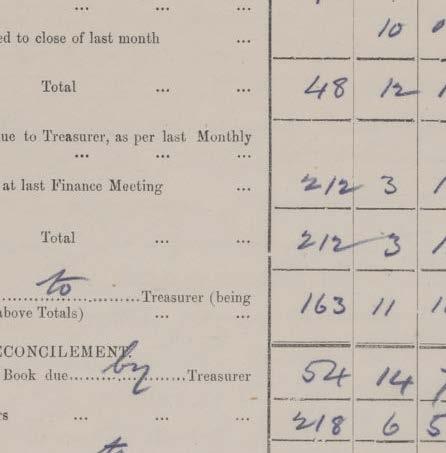 ... ... ...
ed to close of last month ... 10
Total ... ... 48 12
ue to Treasurer, as per last Monthly
... ... ...
at last Finance Meeting ... 212 3
Total ... ... 212 3
to
Treasurer (being
above Totals) ... ... 163 11
ECONCILEMENT.
Book due by Treasurer 54 14 7
rs ... ... ... 218 6 5
to